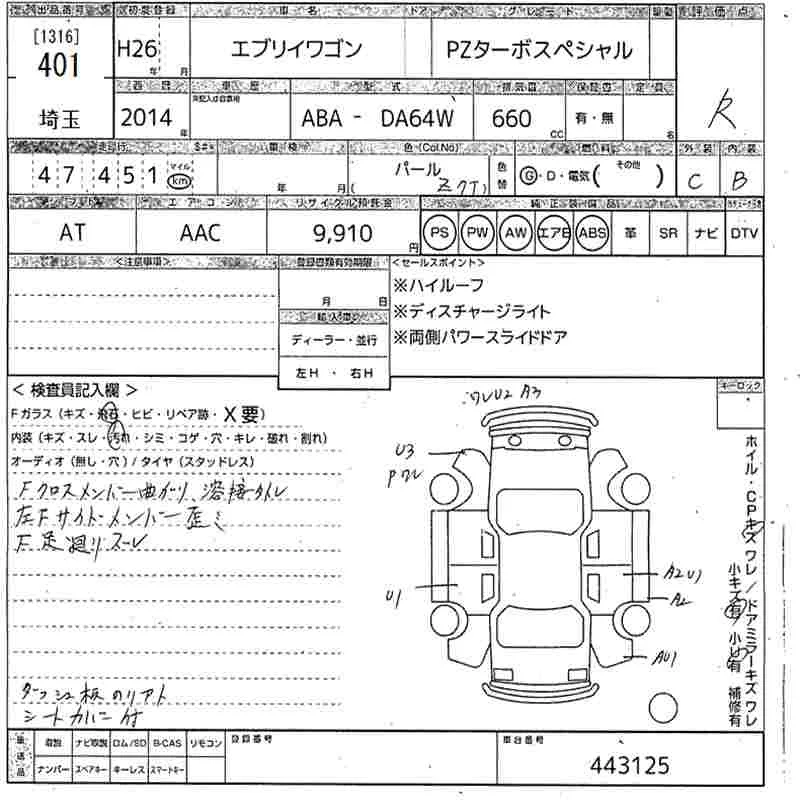 出品番号 初度登録 車名 ドア グレード 車歴 評価点
[1316]
401
埼玉
H26 年 月
エブリイワゴン
PZターボスペシャル
西暦 車歴 型式 排気量 保証書 定員
2014 年
ABA - DA64W
660 CC
有・無
名
走行 車検 色(Col No) 燃料 外装 内装
47451 マイル km
年 月
パール
Z7T)
色替
G・D・電気( その他 )
C
B
シフト エアコン リサイクル預託金 純正装備品
AT
AAC
9,910 円
PS PW AW エアB ABS 革 SR ナビ DTV
<注意事項>
登録書類有効期限
月 日
輸入車
ディーラー・並行
左H ・ 右H
<セールスポイント>
※ハイルーフ
※ディスチャージライト
※両側パワースライドドア
キーロック
< 検査員記入欄 >
Fガラス(キズ・飛石・ヒビ・リペア跡・X要)
内装(キズ・スレ・汚れ・シミ・コゲ・穴・キレ・破れ・割れ)
オーディオ(無し・穴)/タイヤ(スタッドレス)
Fクロスメンバー曲がり、溶接外レ
左Fサイドメンバー歪ミ
F足廻りスレ
ダッシュ板のリアト
シートカバー付
ワレU2 A3
U3
Pワレ
U1
A2U1
A2
AU1
ホイル・CPキズワレ/ドアミラーキズワレ
小キズ有 小U有 補修有
後送品
取説 ナビ取説 ロム/SD B-CAS リモコン
ナンバー スペアキー キーレス スマートキー
登録番号
車台番号
443125